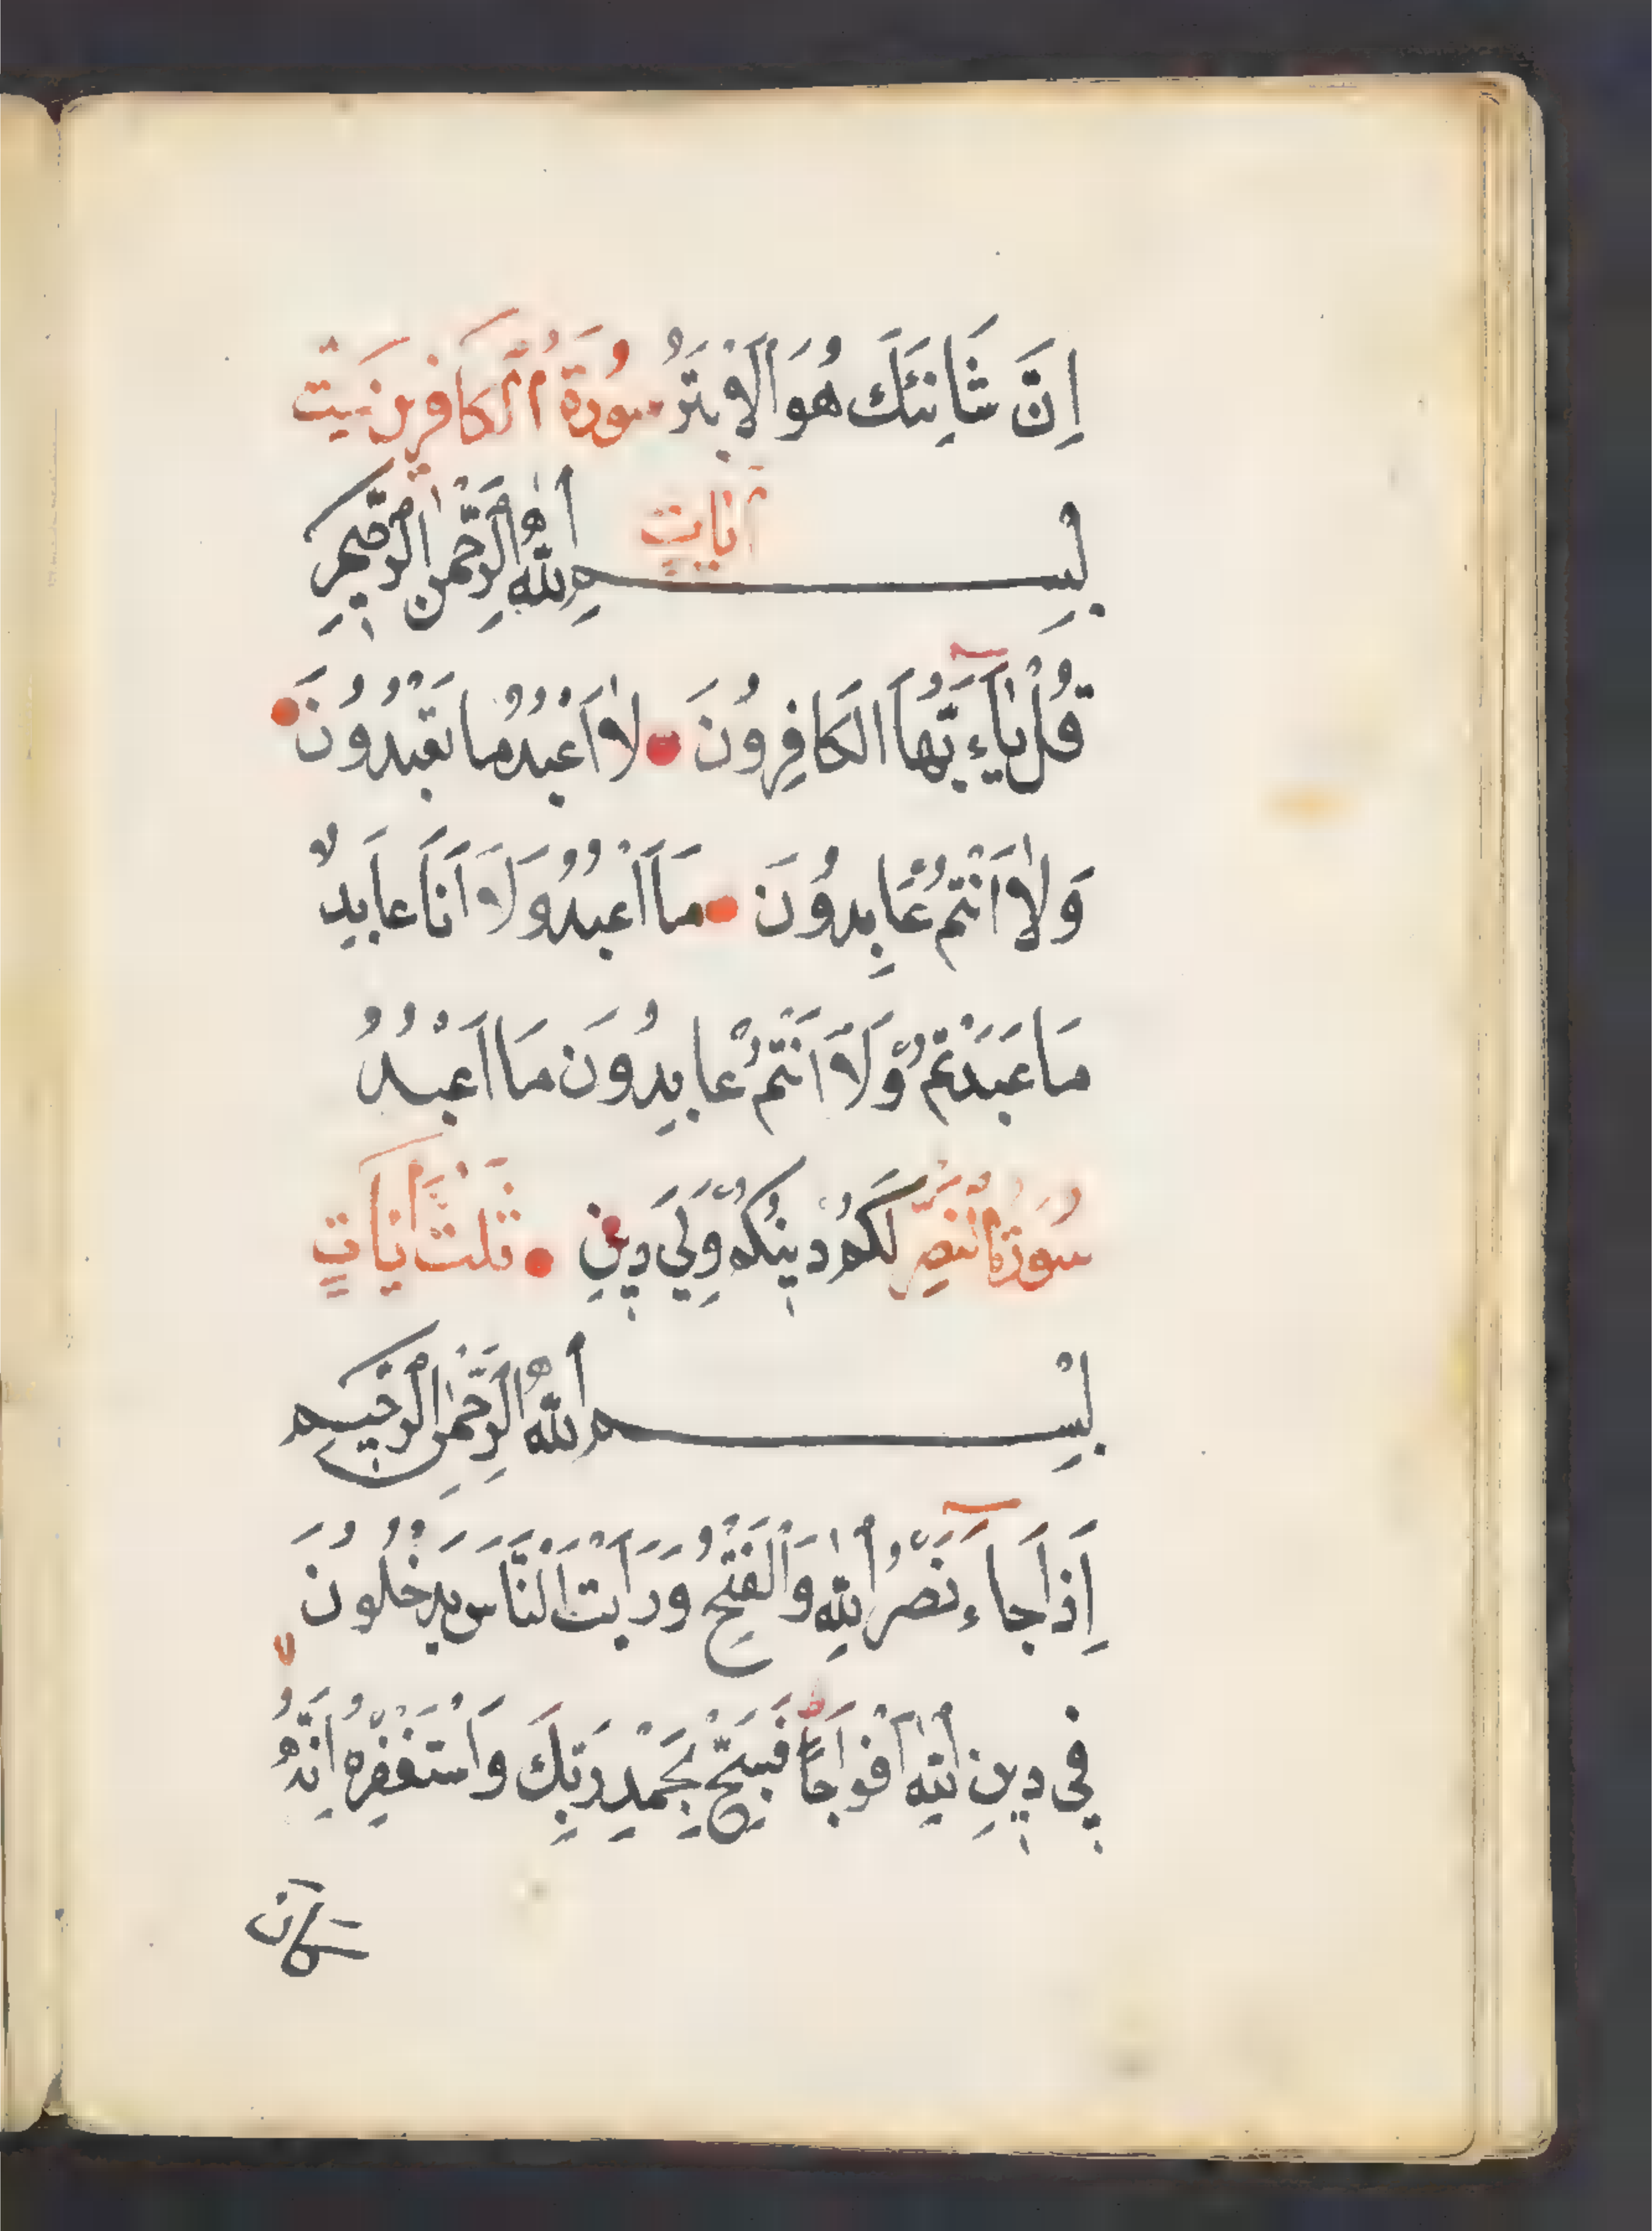 اِنَّ شَانِئَكَ هُوَ الْاَبْتَرُ سُورَةُ الْكَافِرِينَ سِتّ
اٰيَاتٍ
بِسْمِ اللّٰهِ الرَّحْمٰنِ الرَّحِيمِ
قُلْ يٰاَءيُّهَا الكَافِرُونَ لَا اَعْبُدُ مَا تَعْبُدُونَ
وَلَا اَنْتُمْ عَابِدُونَ مَا اَعْبُدُ وَلَا اَنَا عَابِدٌ
مَا عَبَدْتُمْ وَلَا اَنْتُمْ عَابِدُونَ مَا اَعْبُدُ
سُورَةُ النَّصْرِ لَكُمْ دِينُكُمْ وَلِيَ دِينِ ثَلٰث اٰيَاتٍ
بِسْمِ اللّٰهِ الرَّحْمٰنِ الرَّحِيمِ
اِذَا جَاءَ نَصْرُ اللّٰهِ وَالْفَتْحُ وَرَاَيْتَ النَّاسَ يَدْخُلُونَ
فِي دِينِ اللّٰهِ اَفْوَاجًا فَسَبِّحْ بِحَمْدِ رَبِّكَ وَاسْتَغْفِرْهُ اِنَّهُ
كَانَ